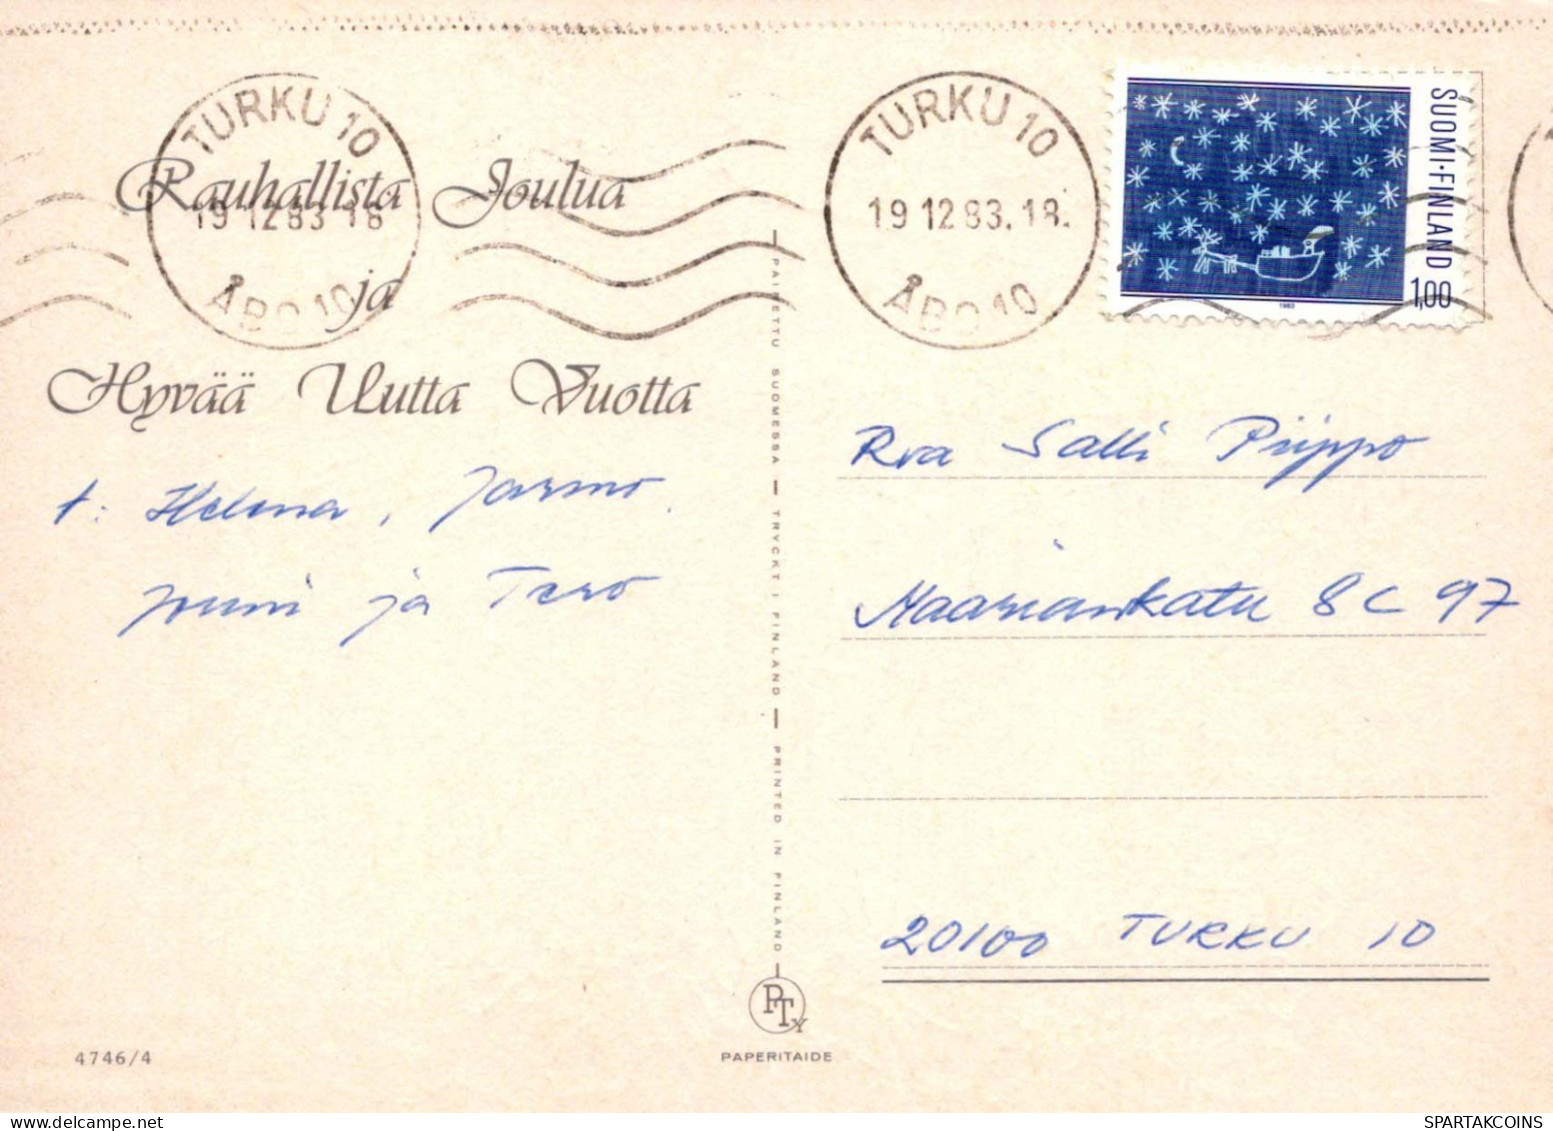 TURKU 10
19 12 83 18
ÅBO 10
TURKU 10
19 12 83. 18.
ÅBO 10
SUOMI·FINLAND
1,00
1983
Rauhallista Joulua
ja
Hyvää Uutta Vuotta
t: Helena, Jarmo.
Jouni ja Tero
PAINETTU SUOMESSA — TRYCKT I FINLAND — PRINTED IN FINLAND
Rva Salli Piippo
Maariankatu 8 C 97
20100 TURKU 10
PTY
PAPERITAIDE
4746/4
SPARTAKCOINS